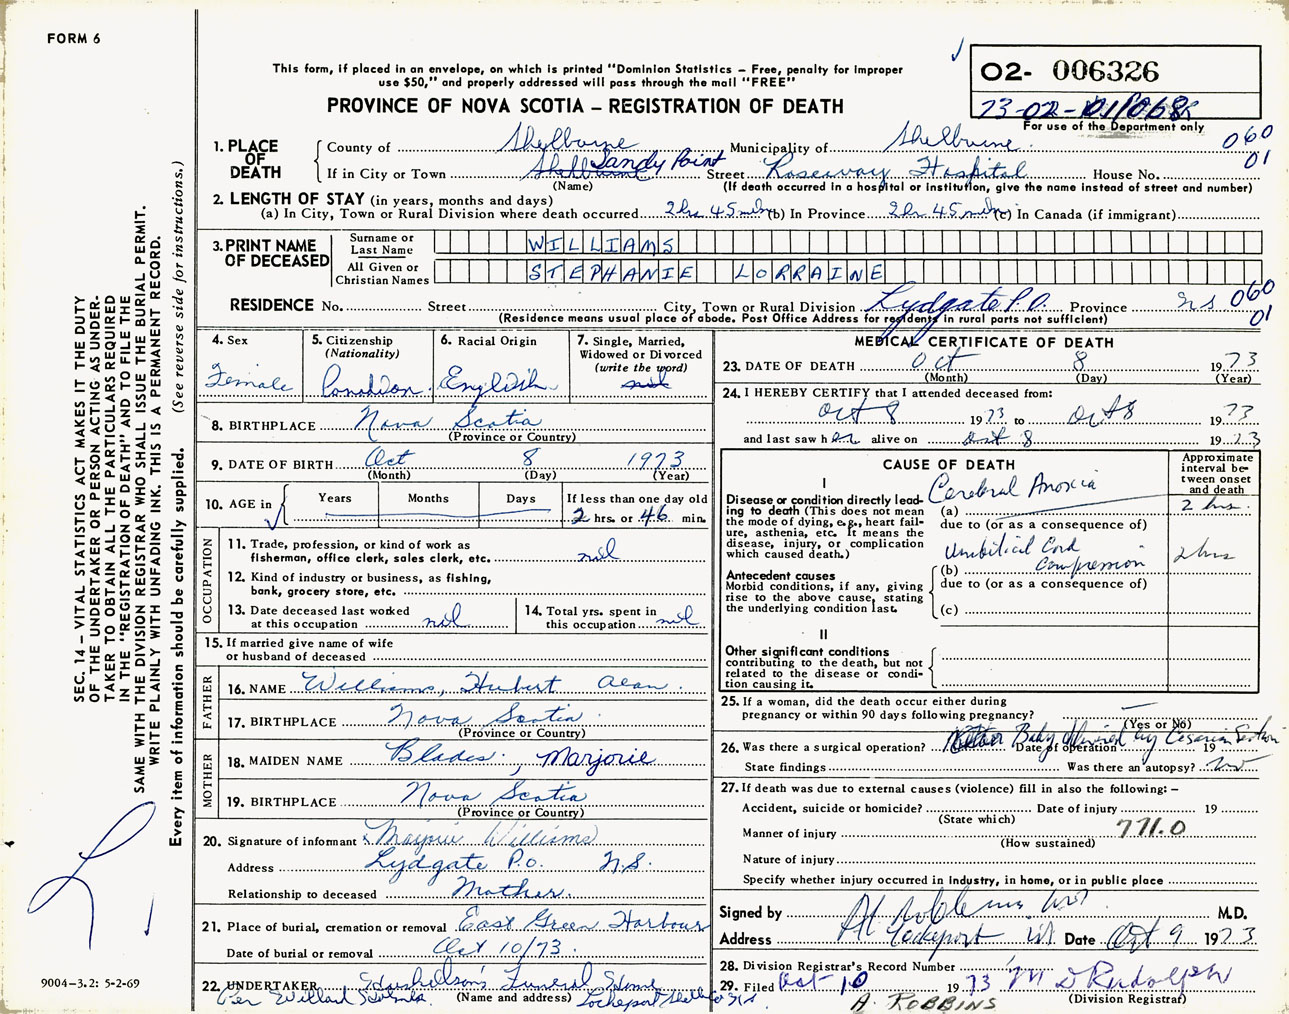 FORM 6
This form, if placed in an envelope, on which is printed "Dominion Statistics – Free, penalty for improper
use $50," and properly addressed will pass through the mail "FREE"
PROVINCE OF NOVA SCOTIA – REGISTRATION OF DEATH
02- 006326
73-02-011068
For use of the Department only
1. PLACE OF DEATH
County of Shelburne Municipality of Shelburne 060
If in City or Town Shelburne Sandy Point Street Roseway Hospital House No. 01
(Name) (If death occurred in a hospital or institution, give the name instead of street and number)
2. LENGTH OF STAY (in years, months and days)
(a) In City, Town or Rural Division where death occurred 2 hrs 45 min (b) In Province 2 hr 45 min (c) In Canada (if immigrant)
3. PRINT NAME OF DECEASED
Surname or Last Name WILLIAMS
All Given or Christian Names STEPHANIE LORRAINE
RESIDENCE No. Street City, Town or Rural Division Lydgate P.O. Province NS 060 01
(Residence means usual place of abode. Post Office Address for residents in rural parts not sufficient)
4. Sex Female
5. Citizenship (Nationality) Canadian
6. Racial Origin English
7. Single, Married, Widowed or Divorced (write the word)
8. BIRTHPLACE Nova Scotia
(Province or Country)
9. DATE OF BIRTH Oct 8 1973
(Month) (Day) (Year)
10. AGE in Years Months Days If less than one day old
2 hrs. or 46 min.
OCCUPATION
11. Trade, profession, or kind of work as
fisherman, office clerk, sales clerk, etc. nil
12. Kind of industry or business, as fishing,
bank, grocery store, etc.
13. Date deceased last worked
at this occupation nil
14. Total yrs. spent in
this occupation nil
15. If married give name of wife
or husband of deceased
FATHER
16. NAME Williams, Hubert Alan
17. BIRTHPLACE Nova Scotia
(Province or Country)
MOTHER
18. MAIDEN NAME Blades, Marjorie
19. BIRTHPLACE Nova Scotia
(Province or Country)
20. Signature of informant Williams
Address Lydgate P.O. N.S.
Relationship to deceased Mother.
21. Place of burial, cremation or removal East Green Harbour
Date of burial or removal Oct 10/73
22. UNDERTAKER Funeral Home
Per Willard
(Name and address) Lockeport
MEDICAL CERTIFICATE OF DEATH
23. DATE OF DEATH Oct 8 1973
(Month) (Day) (Year)
24. I HEREBY CERTIFY that I attended deceased from:
Oct 8 1973 to Oct 8 1973
and last saw her alive on Oct 8 1973
CAUSE OF DEATH
Approximate interval between onset and death
I
Disease or condition directly leading to death (This does not mean the mode of dying, e.g., heart failure, asthenia, etc. It means the disease, injury, or complication which caused death.)
(a) Cerebral Anoxia 2 hrs.
due to (or as a consequence of)
Antecedent causes
Morbid conditions, if any, giving rise to the above cause, stating the underlying condition last.
(b) Umbilical Cord Compression 2 hrs
due to (or as a consequence of)
(c)
II
Other significant conditions
contributing to the death, but not related to the disease or condition causing it.
25. If a woman, did the death occur either during
pregnancy or within 90 days following pregnancy? –
(Yes or No)
26. Was there a surgical operation? Baby delivered by Cesarian Section Date of operation 19
State findings Was there an autopsy? no
27. If death was due to external causes (violence) fill in also the following: –
Accident, suicide or homicide? Date of injury 19
(State which)
Manner of injury 771.0
(How sustained)
Nature of injury
Specify whether injury occurred in industry, in home, or in public place
Signed by M.D.
Address Lockeport Date Oct 9 1973
28. Division Registrar's Record Number
29. Filed Oct 10 1973 M D Rudolph
(Division Registrar)
A. ROBBINS
SEC. 14 – VITAL STATISTICS ACT MAKES IT THE DUTY
OF THE UNDERTAKER OR PERSON ACTING AS UNDER-
TAKER TO OBTAIN ALL THE PARTICULARS REQUIRED
IN THE "REGISTRATION OF DEATH" AND TO FILE THE
SAME WITH THE DIVISION REGISTRAR WHO SHALL ISSUE THE BURIAL PERMIT.
WRITE PLAINLY WITH UNFADING INK. THIS IS A PERMANENT RECORD.
Every item of information should be carefully supplied. (See reverse side for instructions.)
9004-3.2: 5-2-69